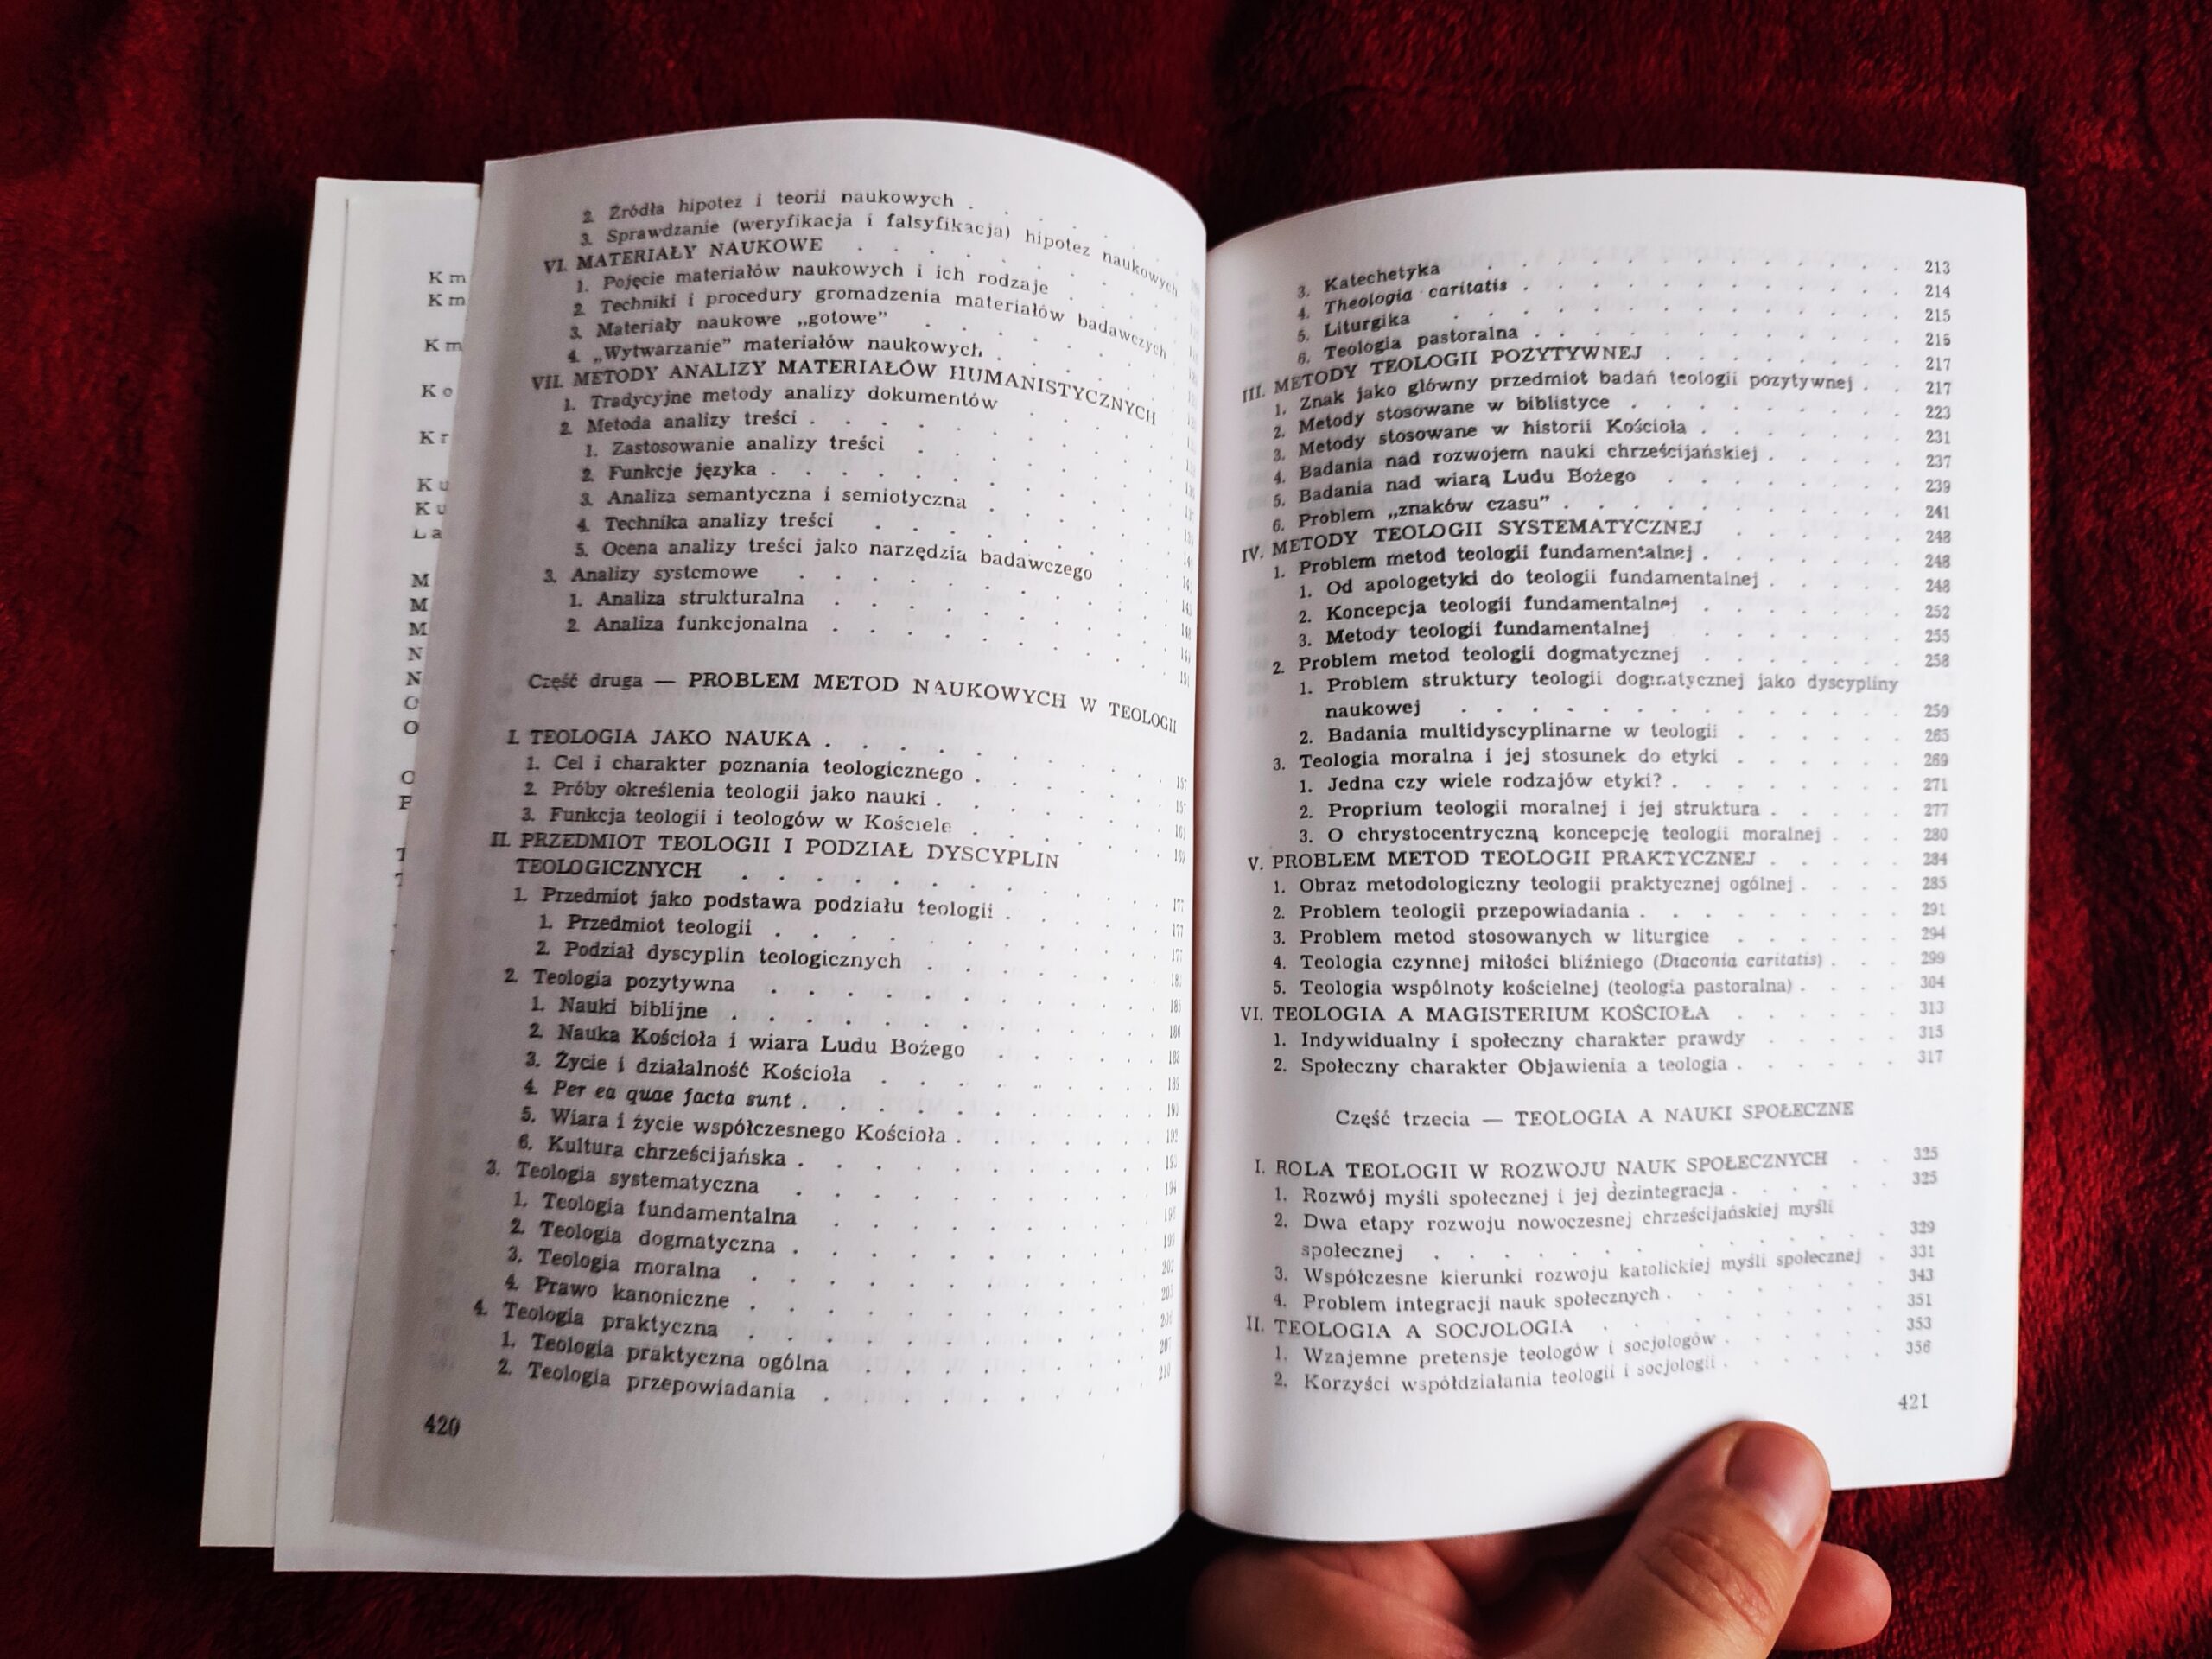 Km
Km
Km
Ko
Kr
Ku
Ku
La
M
M
M
N
N
O
O
2. Źródła hipotez i teorii naukowych
3. Sprawdzanie (weryfikacja i falsyfikacja) hipotez naukowych
VI. MATERIAŁY NAUKOWE
1. Pojęcie materiałów naukowych i ich rodzaje
2. Techniki i procedury gromadzenia materiałów badawczych
3. Materiały naukowe „gotowe”
4. „Wytwarzanie” materiałów naukowych
VII. METODY ANALIZY MATERIAŁÓW HUMANISTYCZNYCH
1. Tradycyjne metody analizy dokumentów
2. Metoda analizy treści
1. Zastosowanie analizy treści
2. Funkcje języka
3. Analiza semantyczna i semiotyczna
4. Technika analizy treści
5. Ocena analizy treści jako narzędzia badawczego
3. Analizy systemowe
1. Analiza strukturalna
2. Analiza funkcjonalna
Część druga — PROBLEM METOD NAUKOWYCH W TEOLOGII
I. TEOLOGIA JAKO NAUKA
1. Cel i charakter poznania teologicznego
2. Próby określenia teologii jako nauki
3. Funkcja teologii i teologów w Kościele
II. PRZEDMIOT TEOLOGII I PODZIAŁ DYSCYPLIN
TEOLOGICZNYCH
1. Przedmiot jako podstawa podziału teologii
1. Przedmiot teologii
2. Podział dyscyplin teologicznych
2. Teologia pozytywna
1. Nauki biblijne
2. Nauka Kościoła i wiara Ludu Bożego
3. Życie i działalność Kościoła
4. Per ea quae facta sunt
5. Wiara i życie współczesnego Kościoła
6. Kultura chrześcijańska
3. Teologia systematyczna
1. Teologia fundamentalna
2. Teologia dogmatyczna
3. Teologia moralna
4. Prawo kanoniczne
4. Teologia praktyczna
1. Teologia praktyczna ogólna
2. Teologia przepowiadania
420
3. Katechetyka 213
4. Theologia caritatis 214
5. Liturgika 215
6. Teologia pastoralna 216
III. METODY TEOLOGII POZYTYWNEJ 217
1. Znak jako główny przedmiot badań teologii pozytywnej 217
2. Metody stosowane w biblistyce 223
3. Metody stosowane w historii Kościoła 231
4. Badania nad rozwojem nauki chrześcijańskiej 237
5. Badania nad wiarą Ludu Bożego 239
6. Problem „znaków czasu” 241
IV. METODY TEOLOGII SYSTEMATYCZNEJ 248
1. Problem metod teologii fundamentalnej 248
1. Od apologetyki do teologii fundamentalnej 248
2. Koncepcja teologii fundamentalnej 252
3. Metody teologii fundamentalnej 255
2. Problem metod teologii dogmatycznej 258
1. Problem struktury teologii dogmatycznej jako dyscypliny
naukowej 259
2. Badania multidyscyplinarne w teologii 265
3. Teologia moralna i jej stosunek do etyki 269
1. Jedna czy wiele rodzajów etyki? 271
2. Proprium teologii moralnej i jej struktura 277
3. O chrystocentryczną koncepcję teologii moralnej 280
V. PROBLEM METOD TEOLOGII PRAKTYCZNEJ 284
1. Obraz metodologiczny teologii praktycznej ogólnej 285
2. Problem teologii przepowiadania 291
3. Problem metod stosowanych w liturgice 294
4. Teologia czynnej miłości bliźniego (Diaconia caritatis) 299
5. Teologia wspólnoty kościelnej (teologia pastoralna) 304
VI. TEOLOGIA A MAGISTERIUM KOŚCIOŁA 313
1. Indywidualny i społeczny charakter prawdy 315
2. Społeczny charakter Objawienia a teologia 317
Część trzecia — TEOLOGIA A NAUKI SPOŁECZNE
I. ROLA TEOLOGII W ROZWOJU NAUK SPOŁECZNYCH 325
1. Rozwój myśli społecznej i jej dezintegracja 325
2. Dwa etapy rozwoju nowoczesnej chrześcijańskiej myśli
społecznej 329
3. Współczesne kierunki rozwoju katolickiej myśli społecznej 331
4. Problem integracji nauk społecznych 343
II. TEOLOGIA A SOCJOLOGIA 351
1. Wzajemne pretensje teologów i socjologów 353
2. Korzyści współdziałania teologii i socjologii 356
421